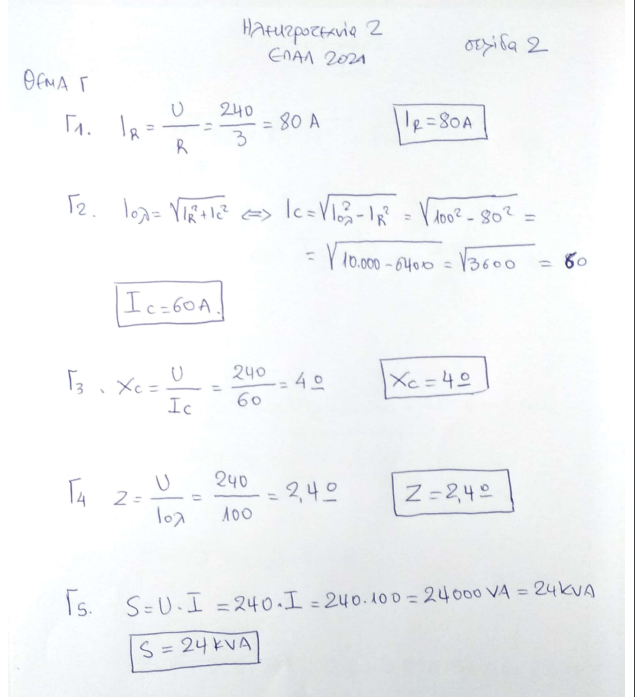 Ηλεκτροτεχνία 2
ΕΠΑΛ 2021
σελίδα 2
ΘΕΜΑ Γ
Γ1. IR = U/R = 240/3 = 80 A
IR = 80A
Γ2. Ιολ = √(IR²+Ic²) ⇔ Ic = √(Iολ² - IR²) = √(100² - 80²) =
= √(10.000 - 6400) = √3600 = 60
Ic = 60A.
Γ3. Xc = U/Ic = 240/60 = 4Ω
Xc = 4Ω
Γ4 Z = U/Ιολ = 240/100 = 2,4Ω
Z = 2,4Ω
Γ5. S = U · I = 240 · I = 240 . 100 = 24000 VA = 24KVA
S = 24KVA